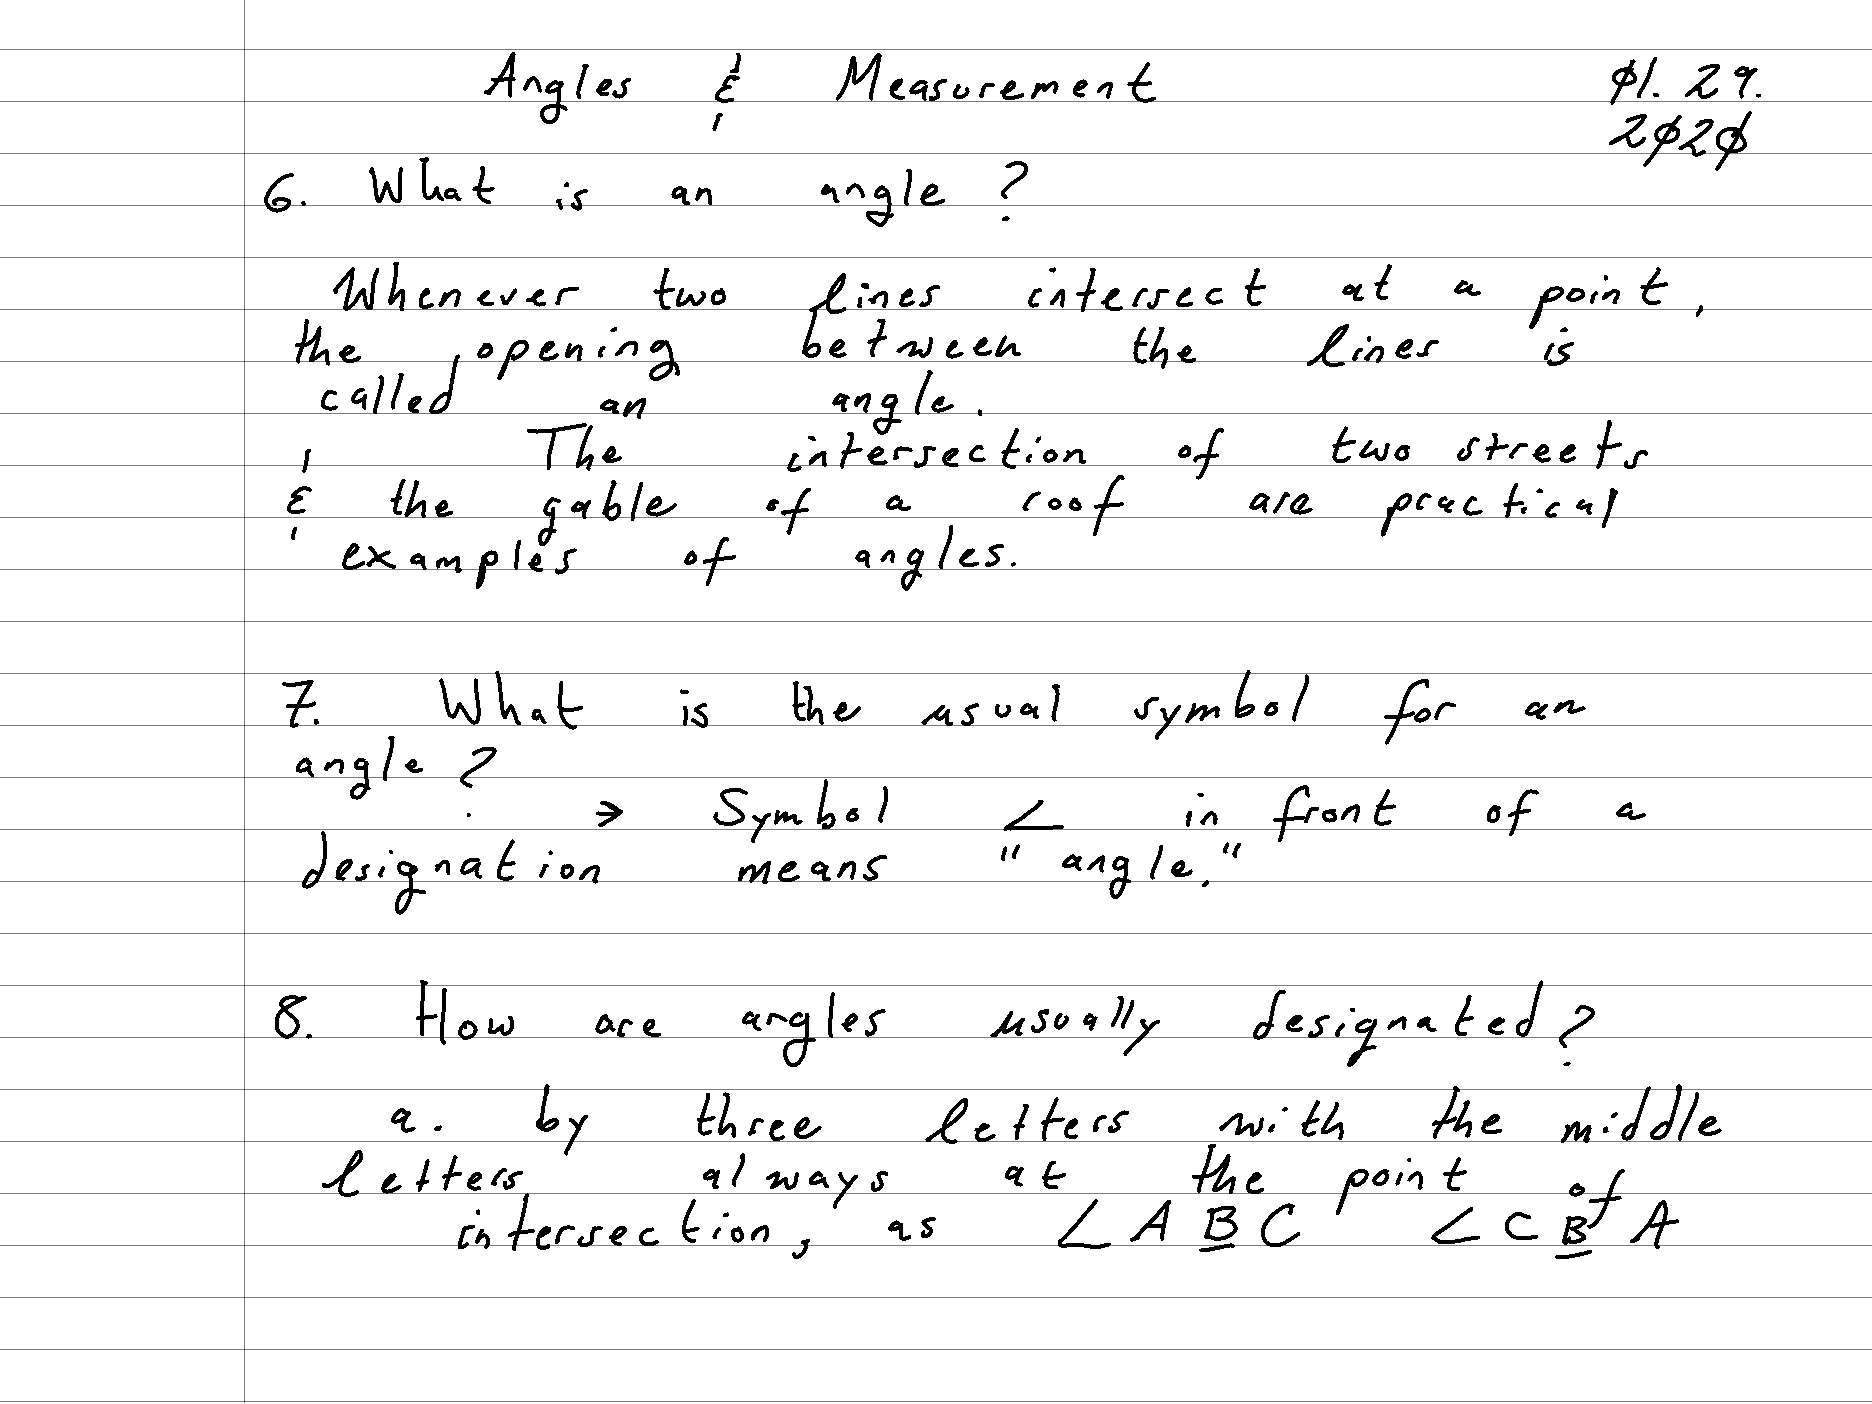 Angles & Measurement 01. 29.
2020
6. What is an angle?
Whenever two lines intersect at a point,
the opening between the lines is
called an angle.
The intersection of two streets
& the gable of a roof are practical
examples of angles.
7. What is the usual symbol for an
angle?
→ Symbol ∠ in front of a
designation means "angle."
8. How are angles usually designated?
a. by three letters with the middle
letters always at the point of
intersection, as ∠ABC ∠CBA